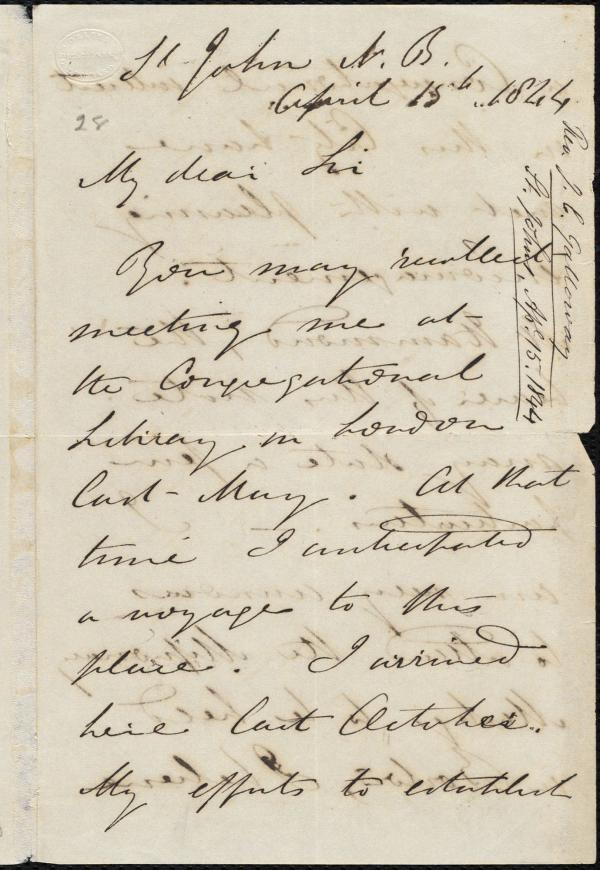 St John N. B.
April 15th 1844
28
My dear Sir
You may recollect
meeting me at
the Congregational
Library in London
last May. At that
time I anticipated
a voyage to this
place. I arrived
here last October.
My efforts to establish
Rev J. C. Galloway
St. Johns, Ap. 15. 1844